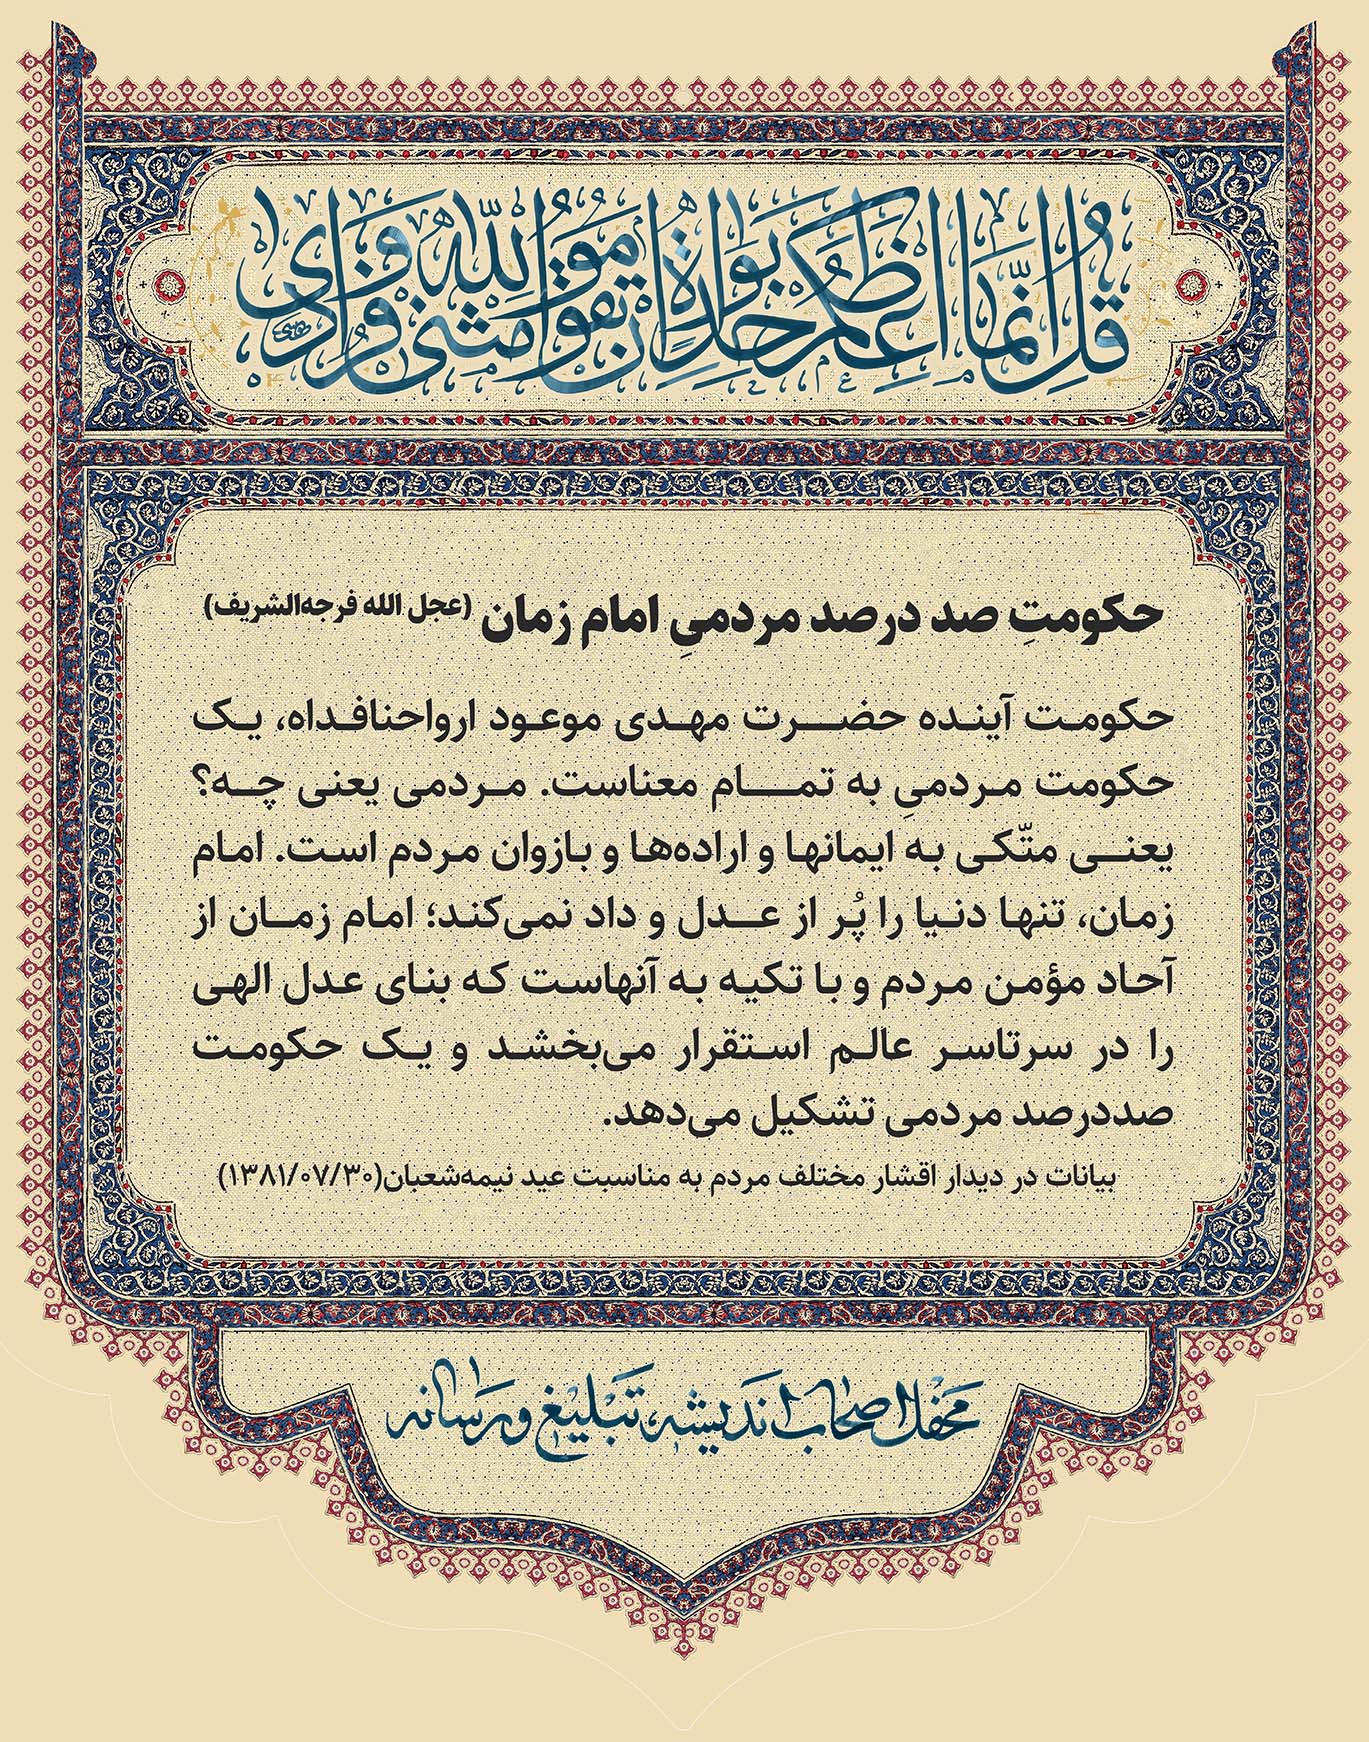 قل انما اعظکم بواحدة ان تقوموا لله مثنی و فرادی
حکومتِ صد درصد مردمیِ امام زمان (عجل الله فرجه‌الشریف)
حکومت آینده حضرت مهدی موعود ارواحنافداه، یک
حکومت مردمیِ به تمام معناست. مردمی یعنی چه؟
یعنی متّکی به ایمانها و اراده‌ها و بازوان مردم است. امام
زمان، تنها دنیا را پُر از عدل و داد نمی‌کند؛ امام زمان از
آحاد مؤمن مردم و با تکیه به آنهاست که بنای عدل الهی
را در سرتاسر عالم استقرار می‌بخشد و یک حکومت
صددرصد مردمی تشکیل می‌دهد.
بیانات در دیدار اقشار مختلف مردم به مناسبت عید نیمه‌شعبان(۱۳۸۱/۰۷/۳۰)
محفل اصحاب اندیشه، تبلیغ و رسانه